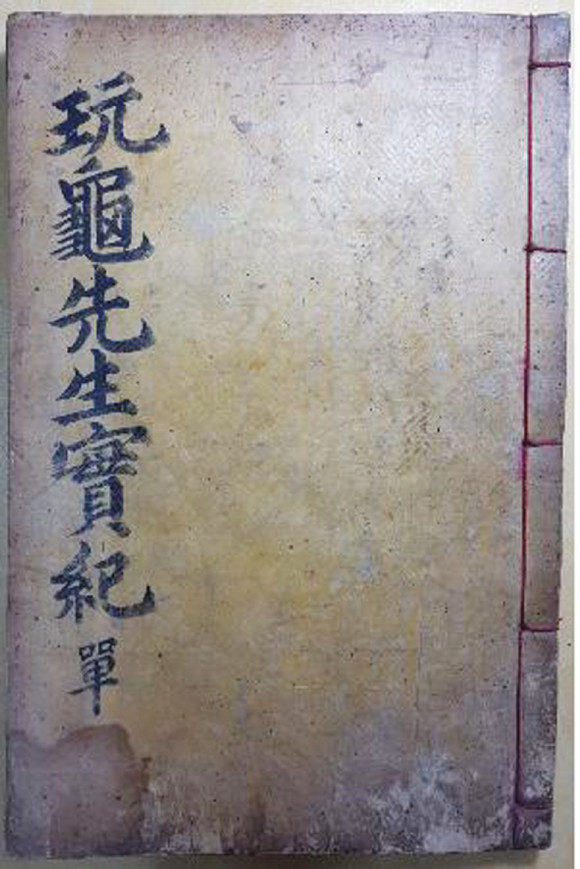 玩龜先生實紀 單